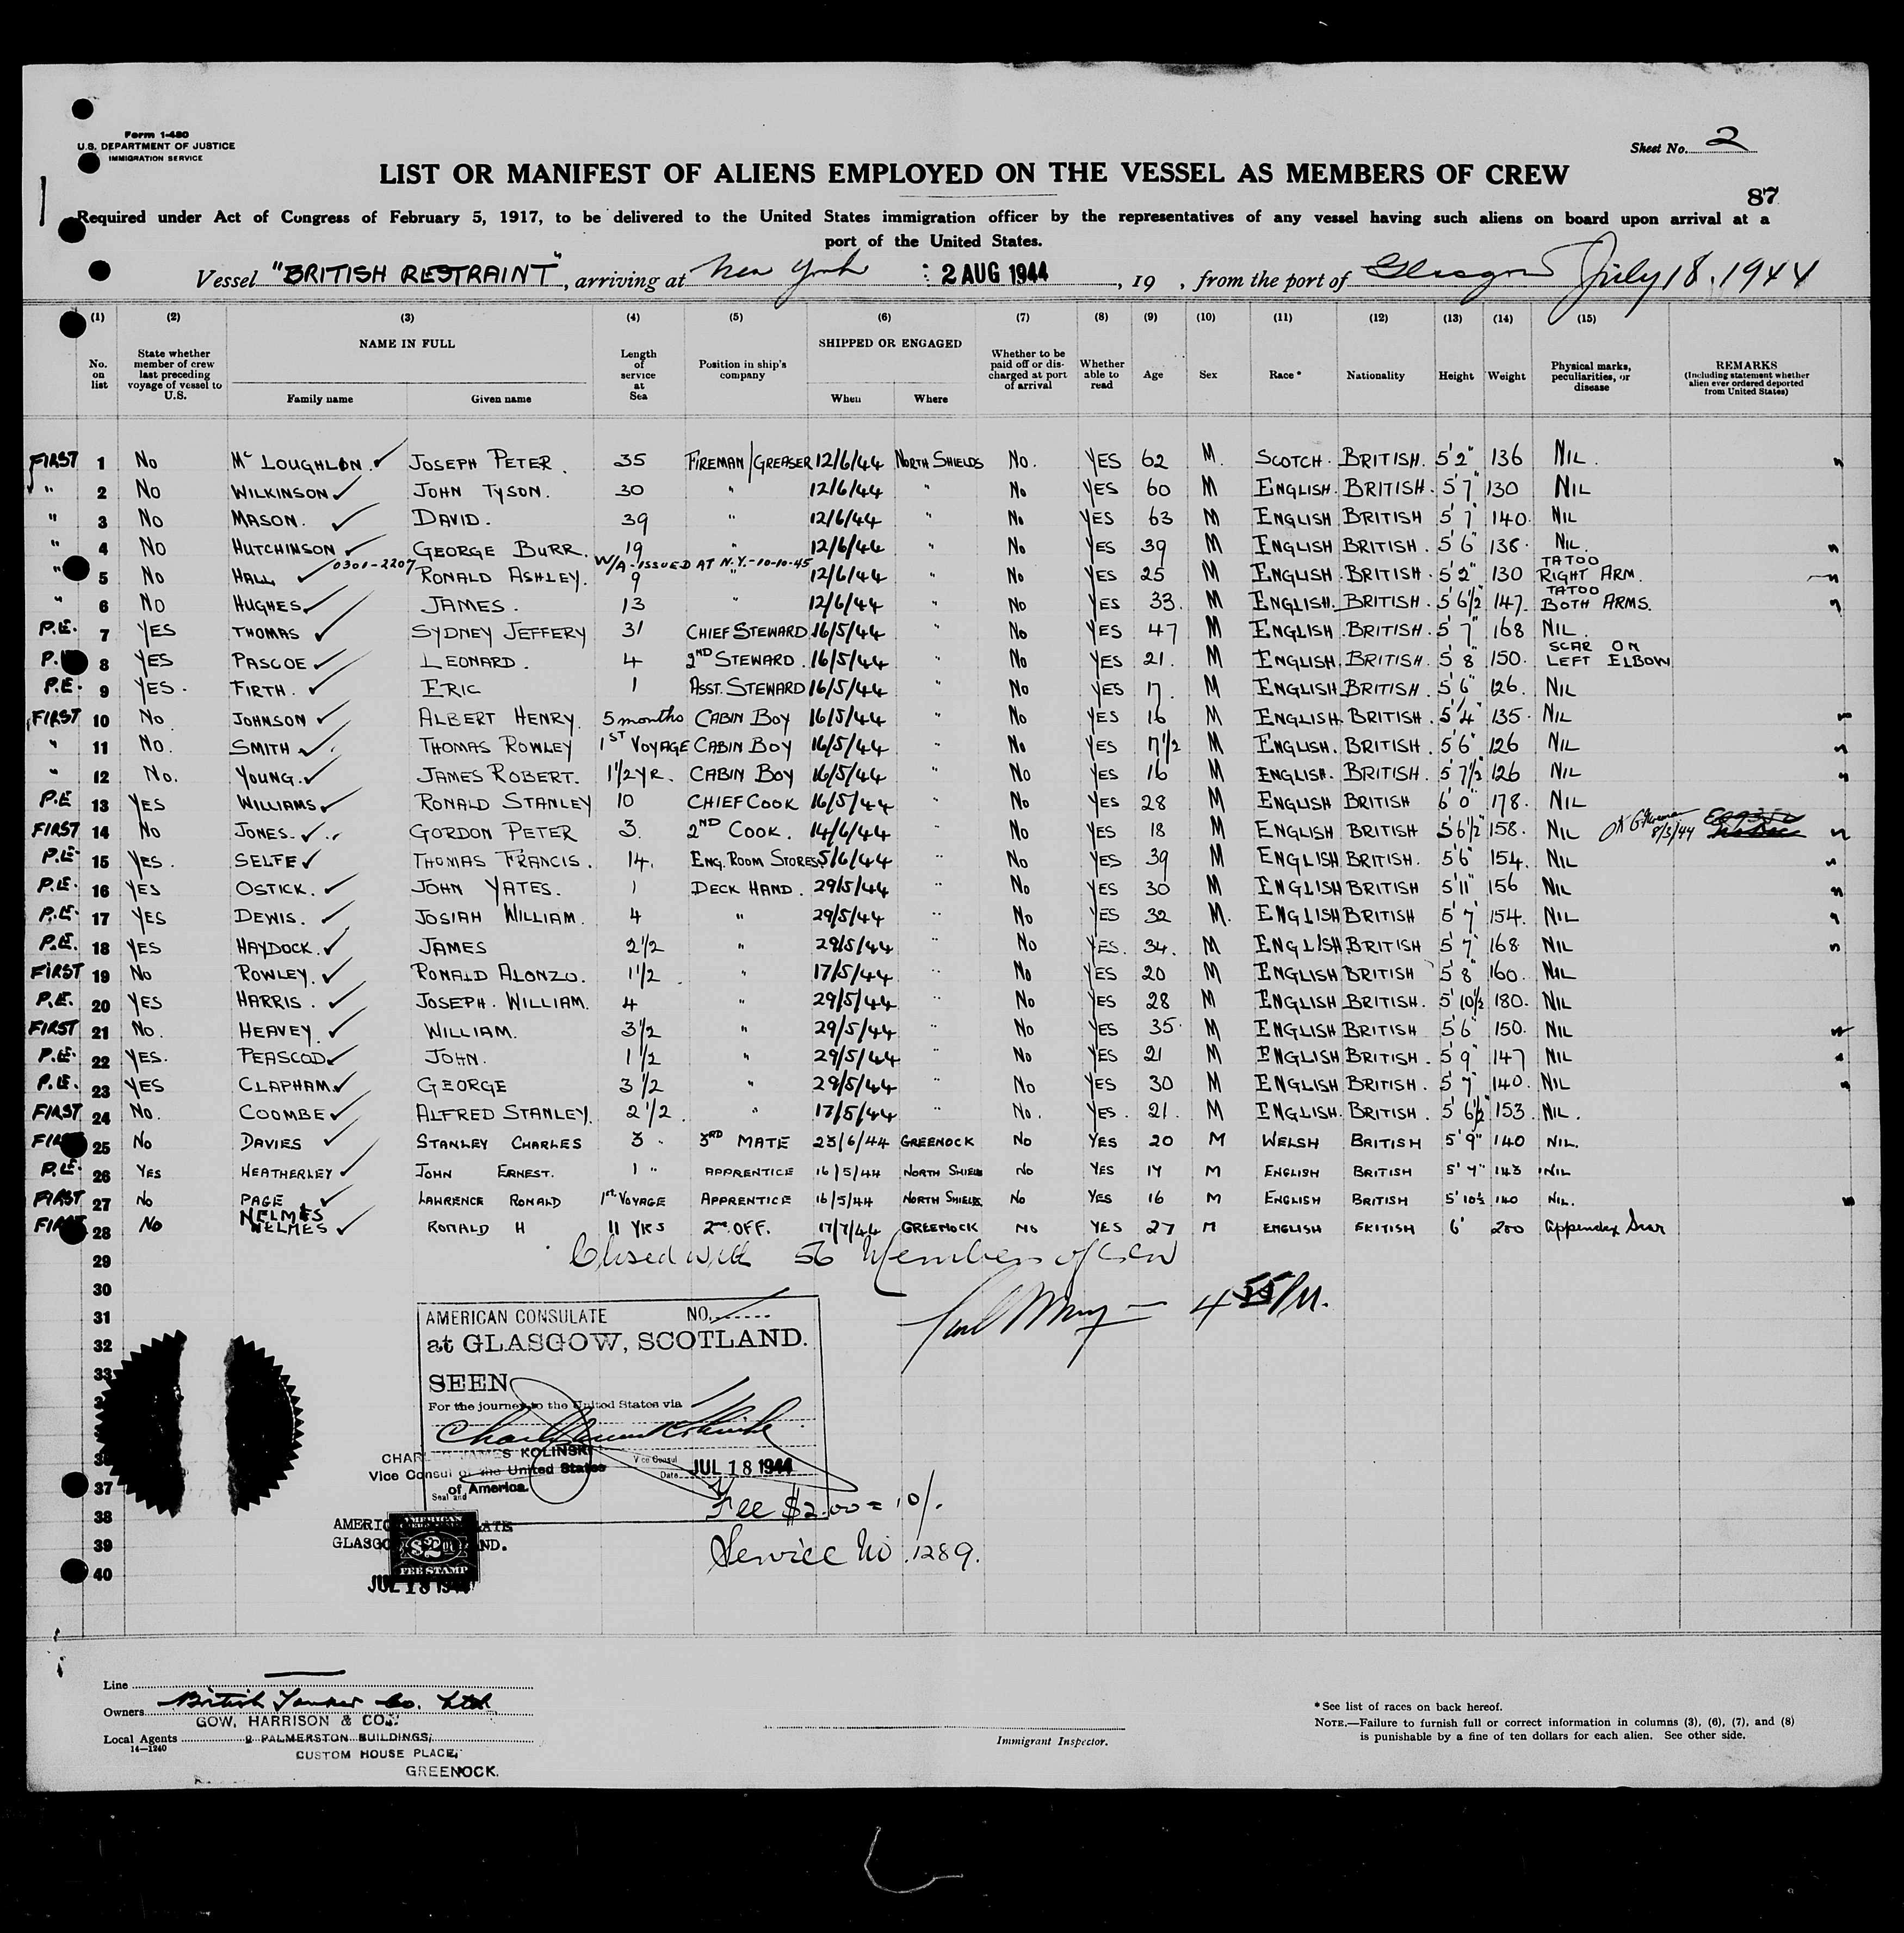 Form I-480
U.S. DEPARTMENT OF JUSTICE
IMMIGRATION SERVICE
Sheet No. 2
LIST OR MANIFEST OF ALIENS EMPLOYED ON THE VESSEL AS MEMBERS OF CREW
87
Required under Act of Congress of February 5, 1917, to be delivered to the United States immigration officer by the representatives of any vessel having such aliens on board upon arrival at a
port of the United States.
Vessel "BRITISH RESTRAINT", arriving at New York 2 AUG 1944, 19 , from the port of Glasgow July 18, 1944
(1) (2) (3) (4) (5) (6) (7) (8) (9) (10) (11) (12) (13) (14) (15)
No. on list
State whether member of crew last preceding voyage of vessel to U.S.
NAME IN FULL
Family name Given name
Length of service at Sea
Position in ship's company
SHIPPED OR ENGAGED
When Where
Whether to be paid off or discharged at port of arrival
Whether able to read
Age
Sex
Race*
Nationality
Height
Weight
Physical marks, peculiarities, or disease
REMARKS
(Including statement whether alien ever ordered deported from United States)
FIRST 1 No McLOUGHLON. JOSEPH PETER. 35 FIREMAN/GREASER 12/6/44 NORTH SHIELDS No. YES 62 M. SCOTCH. BRITISH. 5'2" 136 NIL.
" 2 No WILKINSON JOHN TYSON. 30 " 12/6/44 " No YES 60 M ENGLISH. BRITISH. 5'7" 130 NIL
" 3 No MASON. DAVID. 39 " 12/6/44 " No YES 63 M ENGLISH BRITISH 5'7" 140. NIL
" 4 No HUTCHINSON GEORGE BURR. 19 " 12/6/44 " No YES 39 M ENGLISH BRITISH. 5'6" 138. NIL.
0301-2207 W/A-ISSUED AT N.Y.-10-10-45
" 5 No HALL RONALD ASHLEY. 9 " 12/6/44 " No YES 25 M ENGLISH. BRITISH. 5'2" 130 TATOO RIGHT ARM.
" 6 No HUGHES JAMES. 13 " 12/6/44 " No YES 33. M ENGLISH. BRITISH. 5'6½" 147. TATOO BOTH ARMS.
P.E. 7 YES THOMAS SYDNEY JEFFERY 31 CHIEF STEWARD 16/5/44 " No YES 47 M ENGLISH BRITISH. 5'7" 168 NIL.
P. 8 YES PASCOE LEONARD. 4 2ND STEWARD. 16/5/44 " No YES 21. M ENGLISH. BRITISH. 5'8" 150. SCAR ON LEFT ELBOW
P.E. 9 YES. FIRTH. ERIC 1 ASST. STEWARD 16/5/44 " No YES 17. M ENGLISH BRITISH. 5'6" 126. NIL
FIRST 10 No JOHNSON ALBERT HENRY. 5 months CABIN BOY 16/5/44 " No YES 16 M ENGLISH. BRITISH. 5'4" 135. NIL
" 11 No. SMITH THOMAS ROWLEY 1ST VOYAGE CABIN BOY 16/5/44 " No YES 17½ M ENGLISH. BRITISH. 5'6" 126 NIL
" 12 No. YOUNG. JAMES ROBERT. 1½ YR. CABIN BOY 16/5/44 " No YES 16 M ENGLISH. BRITISH. 5'7½" 126 NIL
P.E 13 YES WILLIAMS RONALD STANLEY 10 CHIEF COOK 16/5/44 " No YES 28 M ENGLISH BRITISH 6'0" 178. NIL
FIRST 14 No JONES. GORDON PETER 3. 2ND COOK. 14/6/44 " No YES 18 M ENGLISH BRITISH. 5'6½" 158. NIL OK 8/3/44
P.E 15 YES. SELFE THOMAS FRANCIS. 14. ENG. ROOM STORES 5/6/44 " No YES 39 M ENGLISH BRITISH. 5'6" 154. NIL
P.E. 16 YES OSTICK. JOHN YATES. 1 DECK HAND. 29/5/44 " No YES 30 M ENGLISH BRITISH 5'11" 156 NIL
P.E. 17 YES DEWIS. JOSIAH WILLIAM. 4 " 29/5/44 " No YES 32 M. ENGLISH BRITISH 5'7" 154. NIL
P.E. 18 YES HAYDOCK. JAMES 2½ " 29/5/44 " No YES. 34. M ENGLISH BRITISH 5'7" 168 NIL
FIRST 19 No ROWLEY. RONALD ALONZO. 1½ " 17/5/44 " No YES 20 M ENGLISH BRITISH 5'8" 160. NIL
P.E. 20 YES HARRIS. JOSEPH. WILLIAM. 4 " 29/5/44 " No YES 28 M ENGLISH BRITISH. 5'10½ 180. NIL
FIRST 21 No. HEAVEY. WILLIAM. 3½ " 29/5/44 " No YES 35. M ENGLISH BRITISH 5'6" 150. NIL
P.E. 22 YES. PEASCOD JOHN. 1½ " 29/5/44 " No YES 21 M ENGLISH BRITISH. 5'9" 147 NIL
P.E. 23 YES CLAPHAM. GEORGE 3½ " 29/5/44 " No YES 30 M ENGLISH BRITISH. 5'7" 140. NIL
FIRST 24 No. COOMBE ALFRED STANLEY. 2½. " 17/5/44 " No. YES. 21. M ENGLISH. BRITISH. 5'6½" 153. NIL.
25 No DAVIES STANLEY CHARLES 3. 3RD MATE 23/6/44 GREENOCK No YES 20 M WELSH BRITISH 5'9" 140 NIL.
P.E. 26 YES WEATHERLEY JOHN ERNEST. 1 " APPRENTICE 16/5/44 NORTH SHIELDS No YES 17 M ENGLISH BRITISH 5'7" 143 NIL
FIRST 27 No PAGE LAWRENCE RONALD 1st VOYAGE APPRENTICE 16/5/44 NORTH SHIELDS No YES 16 M ENGLISH BRITISH 5'10½ 140 NIL.
NELMES
FIRST 28 No NELMES RONALD H 11 YRS 2nd OFF. 17/7/44 GREENOCK No YES 27 M ENGLISH BRITISH 6' 200 Appendix Scar
29 Closed with 56 Members of Crew
30 4 55 PM.
31
32
33
37
38
39
40
AMERICAN CONSULATE NO.
at GLASGOW, SCOTLAND.
SEEN
For the journey to the United States via
CHARLES JAMES KOLINSKI
Vice Consul of the United States
of America.
Vice Consul
Date JUL 18 1944
Seal and
Fee $2.00 = 10/.
Service No. 1289.
AMERICAN CONSULATE
GLASGOW, SCOTLAND.
AMERICAN
$2
FEE STAMP
JUL 18 1944
Line
Owners British Tanker Co. Ltd.
GOW, HARRISON & CO.
Local Agents 2 PALMERSTON BUILDINGS,
14-1240
CUSTOM HOUSE PLACE,
GREENOCK.
Immigrant Inspector.
*See list of races on back hereof.
NOTE.—Failure to furnish full or correct information in columns (3), (6), (7), and (8)
is punishable by a fine of ten dollars for each alien. See other side.